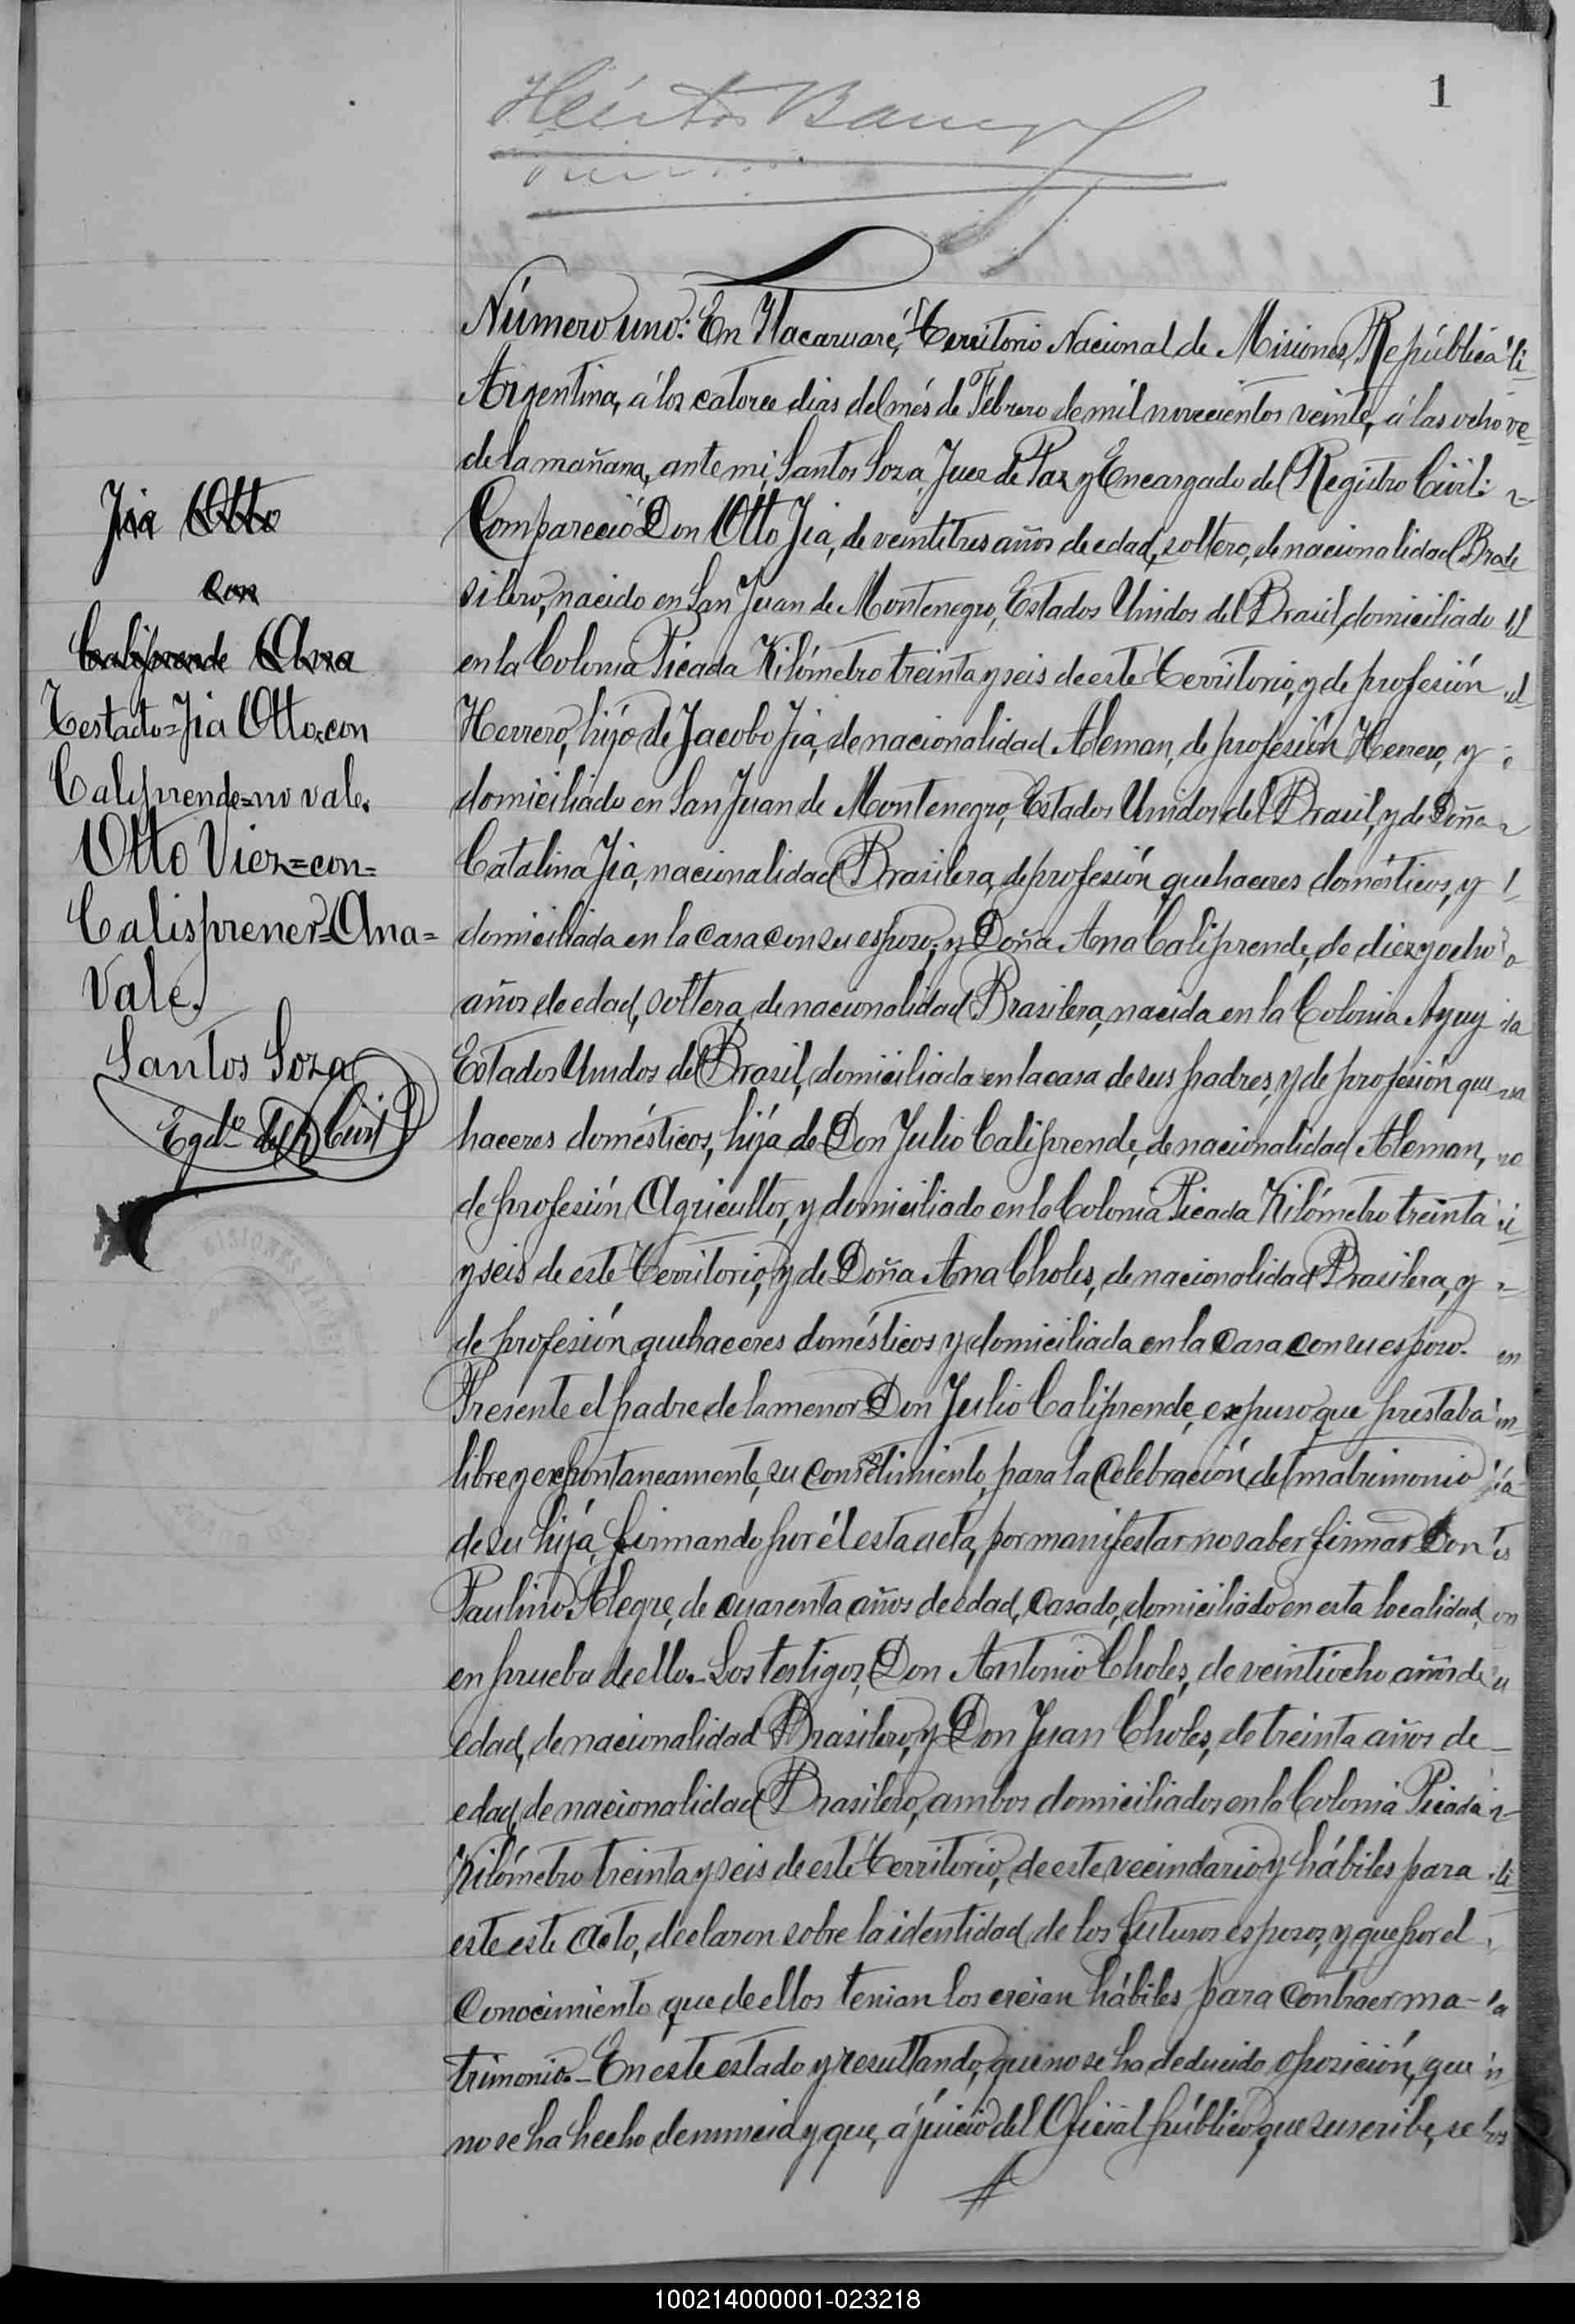 1
Héctor
Número uno: En Itacaruaré, Territorio Nacional de Misiones, República
Argentina, á los catorce dias del més de Febrero de mil novecientos veinte, á las ocho
de la mañana, ante mi, Santos Soza, Juez de Paz y Encargado del Registro Civil:
Compareció Don Otto Jia, de veintitres años de edad, soltero, de nacionalidad Bra
silero, nacido en San Juan de Montenegro, Estados Unidos del Brasil, domiciliado
en la Colonia Picada Kilómetro treinta y seis de este Territorio, y de profesión
Herrero, hijo de Jacobo Jia, de nacionalidad Aleman, de profesión Herrero, y
domiciliado en San Juan de Montenegro, Estados Unidos del Brasil, y de Doña
Catalina Jia, nacionalidad Brasilera, de profesión quehaceres domésticos, y
domiciliada en la casa con su esposo; y Doña Ana Caliprende, de diez y ocho
años de edad, soltera, de nacionalidad Brasilera, nacida en la Colonia Ayuy
Estados Unidos del Brasil, domiciliada en la casa de sus padres, y de profesión que
haceres domésticos, hija de Don Julio Caliprende, de nacionalidad Aleman,
de profesión Agricultor, y domiciliado en la Colonia Picada Kilómetro treinta
y seis de este Territorio, y de Doña Ana Choles, de nacionalidad Brasilera, y
de profesión quehaceres domésticos y domiciliada en la casa con su esposo.
Presente el padre de la menor Don Julio Caliprende, expuso que prestaba
libre y expontaneamente, su consetimiento, para la celebración del matrimonio
de su hija, firmando por él esta acta, por manifestar no saber firmar Don
Paulino Alegre, de cuarenta años de edad, casado, domiciliado en esta localidad,
en prueba de ello. Los testigos, Don Antonio Choles, de veintiocho años de
edad, de nacionalidad Brasilero, y Don Juan Choles, de treinta años de
edad, de nacionalidad Brasilero, ambos domiciliados en la Colonia Picada
Kilómetro treinta y seis de este Territorio, de este vecindario y hábiles para
este este acto, declaron sobre la identidad de los futuros esposos, y que por el
conocimiento que de ellos tenian los creian hábiles para contraer ma-
trimonio. En este estado y resultando, que no se ha deducido oposición, que
no se ha hecho denuncia y que, á juicio del Oficial público que suscribe, se
Jia Otto
con
Caliprende Ana
Testado=Jia Otto=con
Caliprende=no vale.
Otto Vier=con=
Calisprener=Ana=
Vale.
Santos Soza
Egdo del R Civil
MISIONES
100214000001-023218